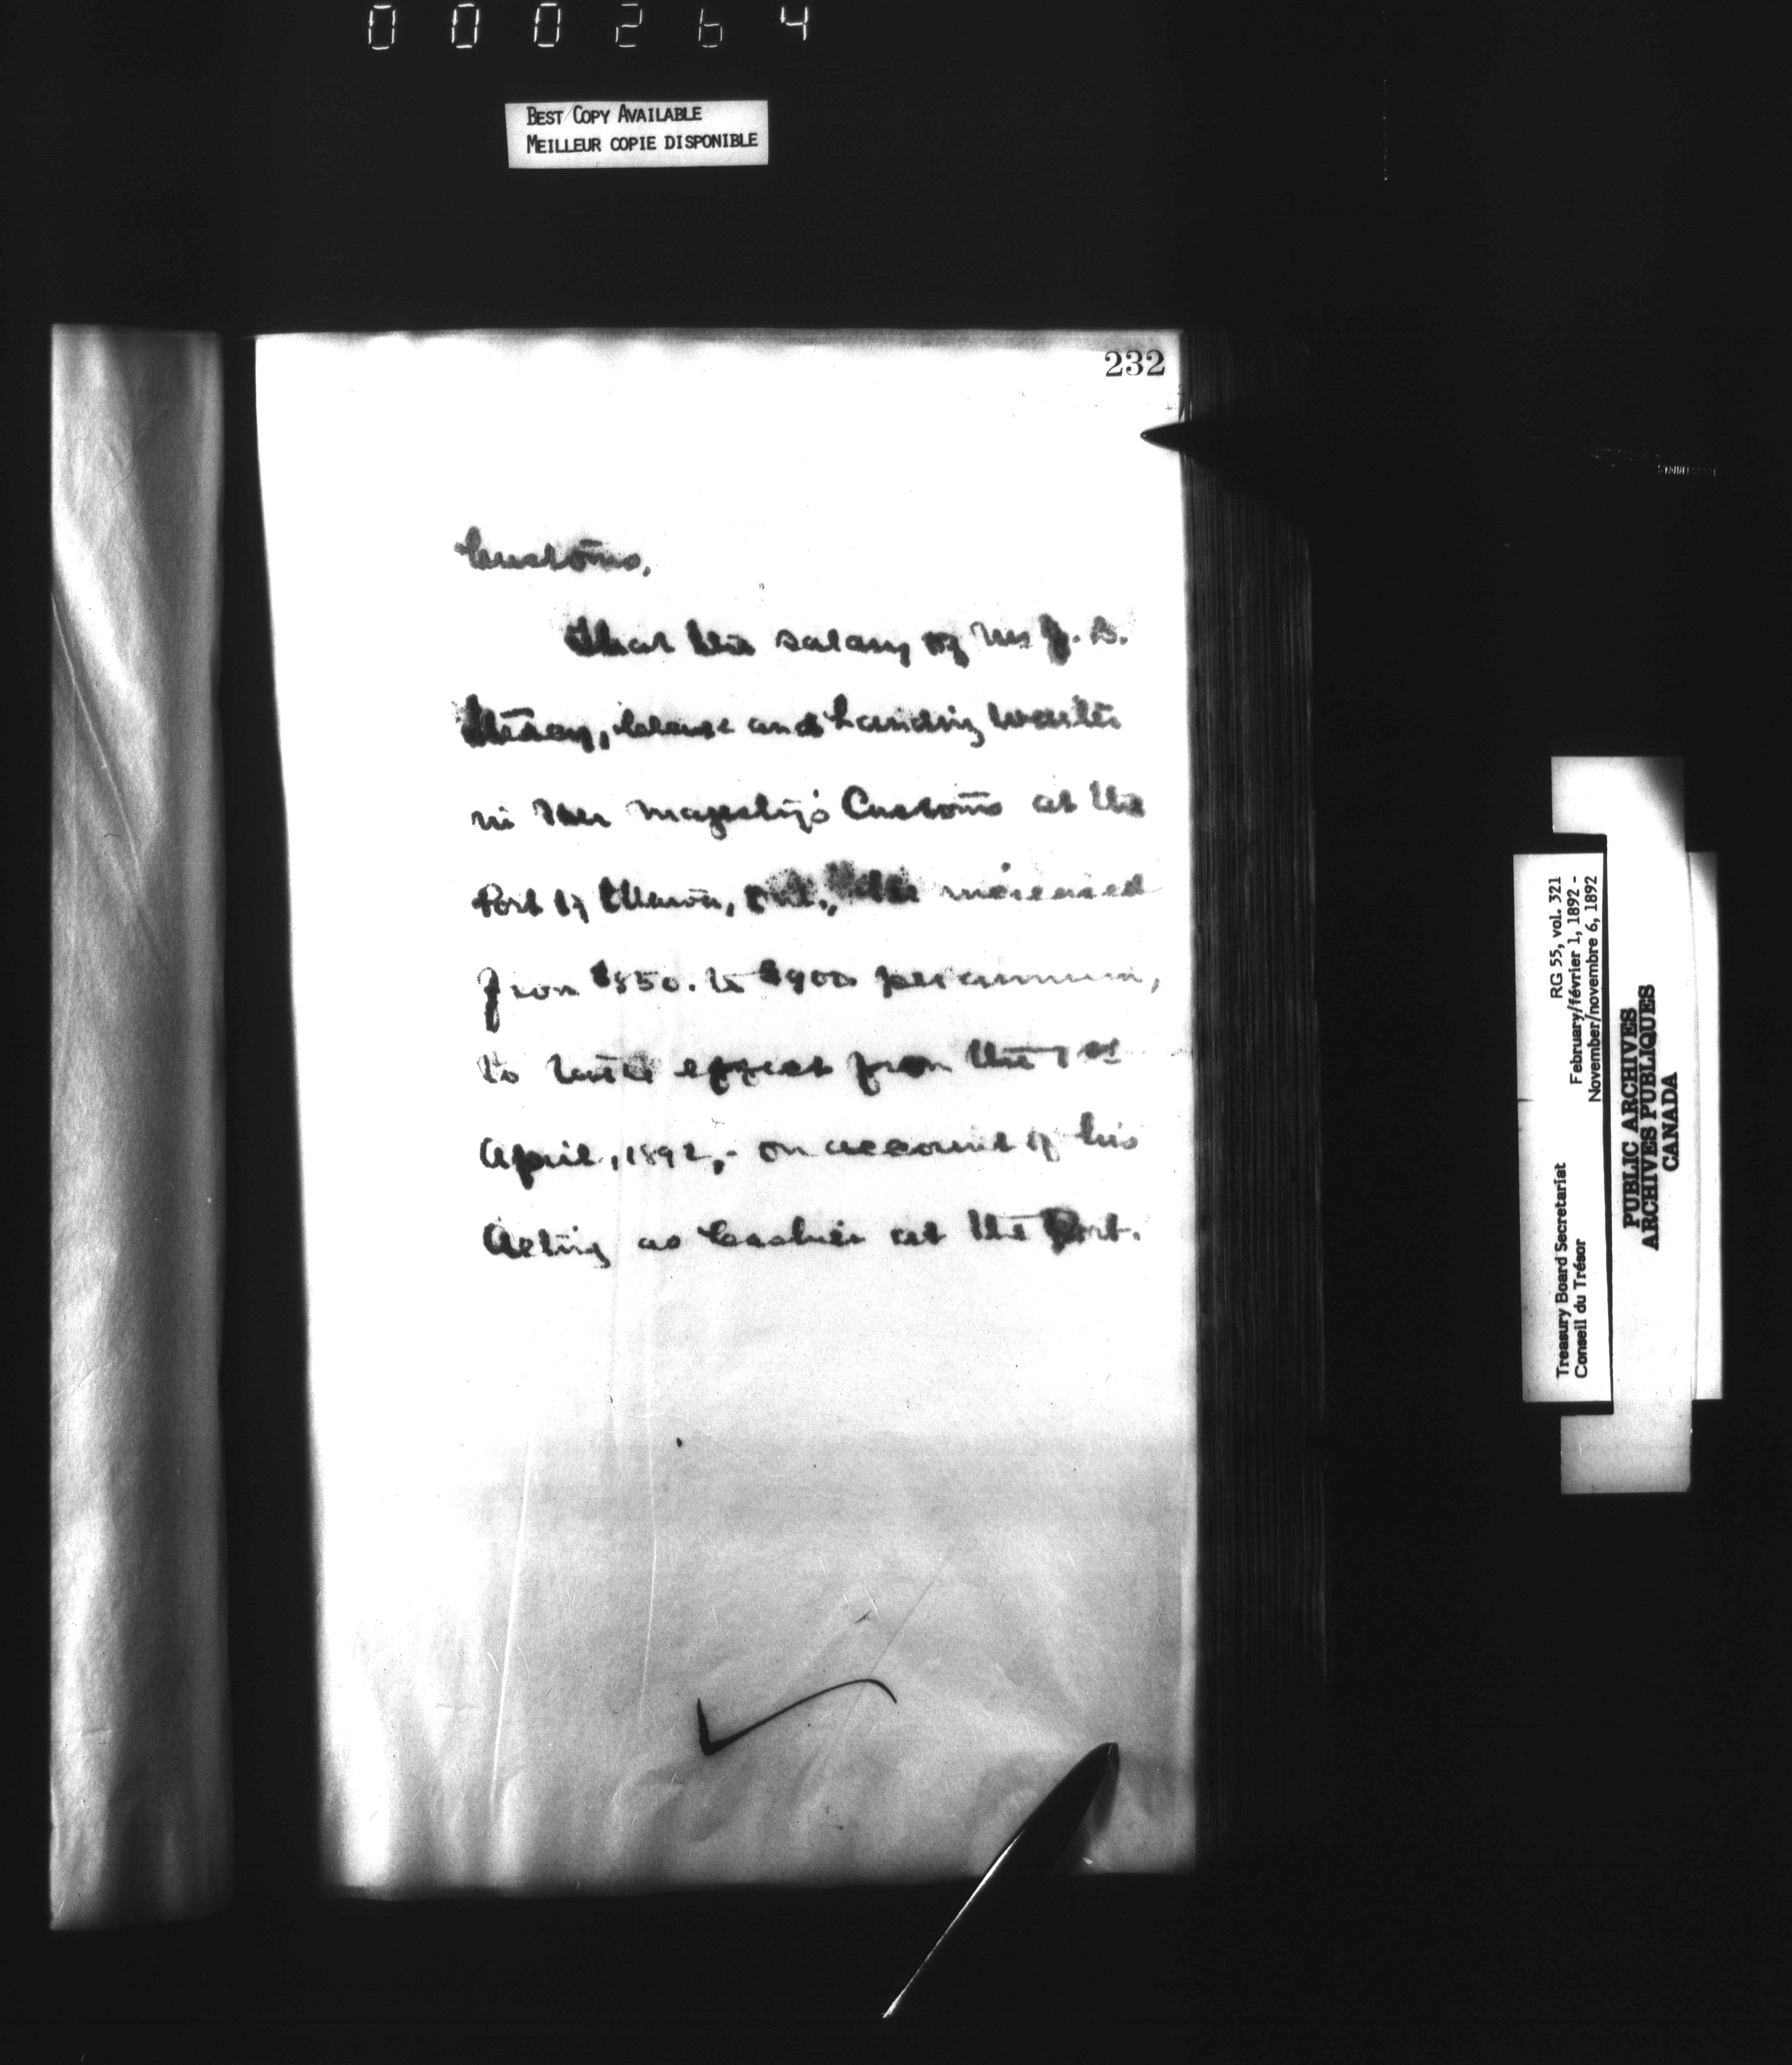 000264
BEST COPY AVAILABLE
MEILLEUR COPIE DISPONIBLE
232
Customs,
That the salary of Mr J. B.
Stacey, Clerk and Landing Waiter
in Her Majesty's Customs at the
Port of Ottawa, Ont., be increased
from $850. to $900 per annum,
to take effect from the 1st
April, 1892,- on account of his
Acting as Cashier at the Port.
Treasury Board Secretariat
Conseil du Trésor
RG 55, vol. 321
February/février 1, 1892 -
November/novembre 6, 1892
PUBLIC ARCHIVES
ARCHIVES PUBLIQUES
CANADA